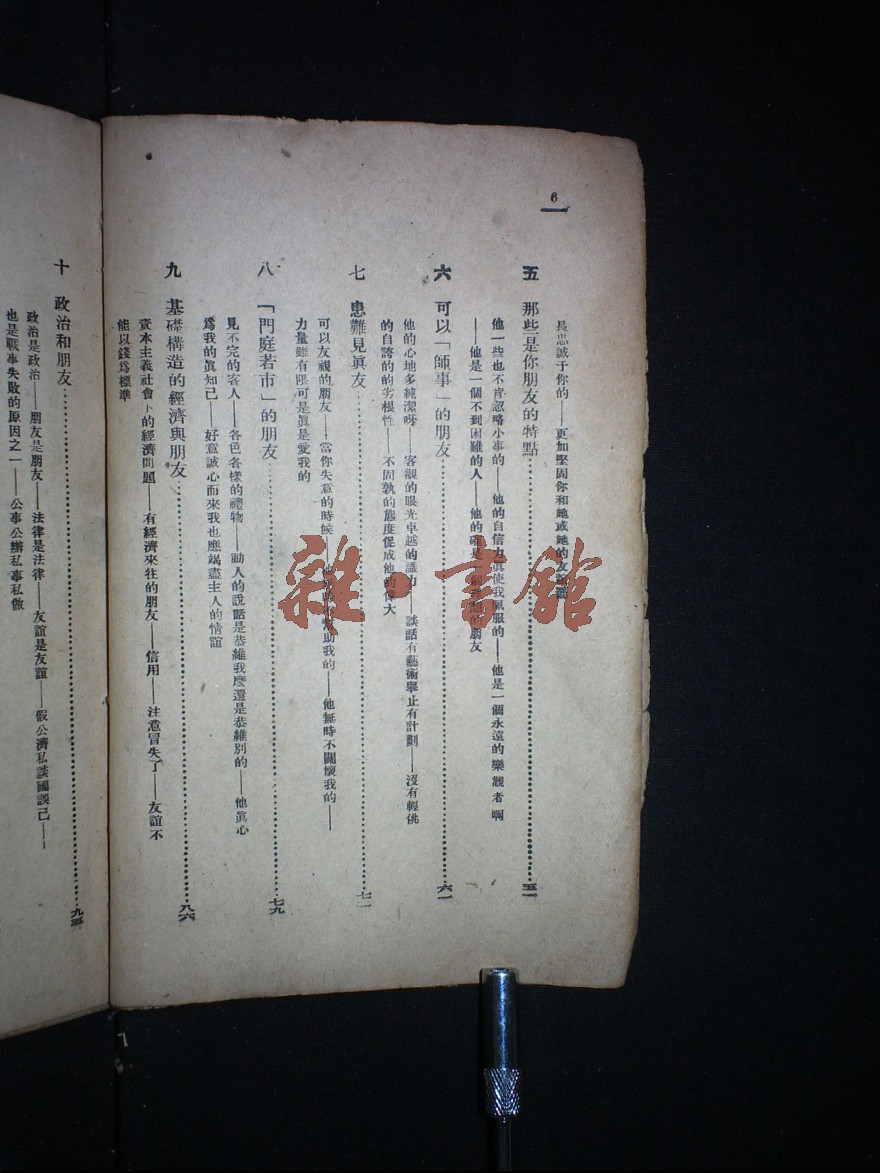 6
長忠誠于你的——更加堅固你和她或她的友誼
五 那些是你朋友的特點 五一
他一些也不肯忽略小事的——他的自信力眞使我佩服的——他是一個永遠的樂觀者啊
——他是一個不到困難的人——他的確是 的朋友
六 可以「師事」的朋友 六一
他的心地多純潔呀——客觀的眼光卓越的識力——談話有藝術舉止有計劃——沒有輕佻
的自誇的的劣根性——不固執的態度促成他的偉大
七 患難見眞友 七一
可以友視的朋友——當你失意的時候—— 助我的——他無時不關懷我的——
力量雖有限可是眞是愛我的
八 「門庭若市」的朋友 七九
見不完的客人——各色各樣的禮物——動人的說話是恭維我麼還是恭維別的——他眞心
爲我的眞知己——好意誠心而來我也應竭盡主人的情誼
九 基礎構造的經濟與朋友 八六
資本主義社會下的經濟問題——有經濟來往的朋友——信用——注意冒失了——友誼不
能以錢爲標準
十 政治和朋友 九五
政治是政治——朋友是朋友——法律是法律——友誼是友誼——假公濟私談國誤己——
也是戰事失敗的原因之一——公事公辦私事私做
雜·書館